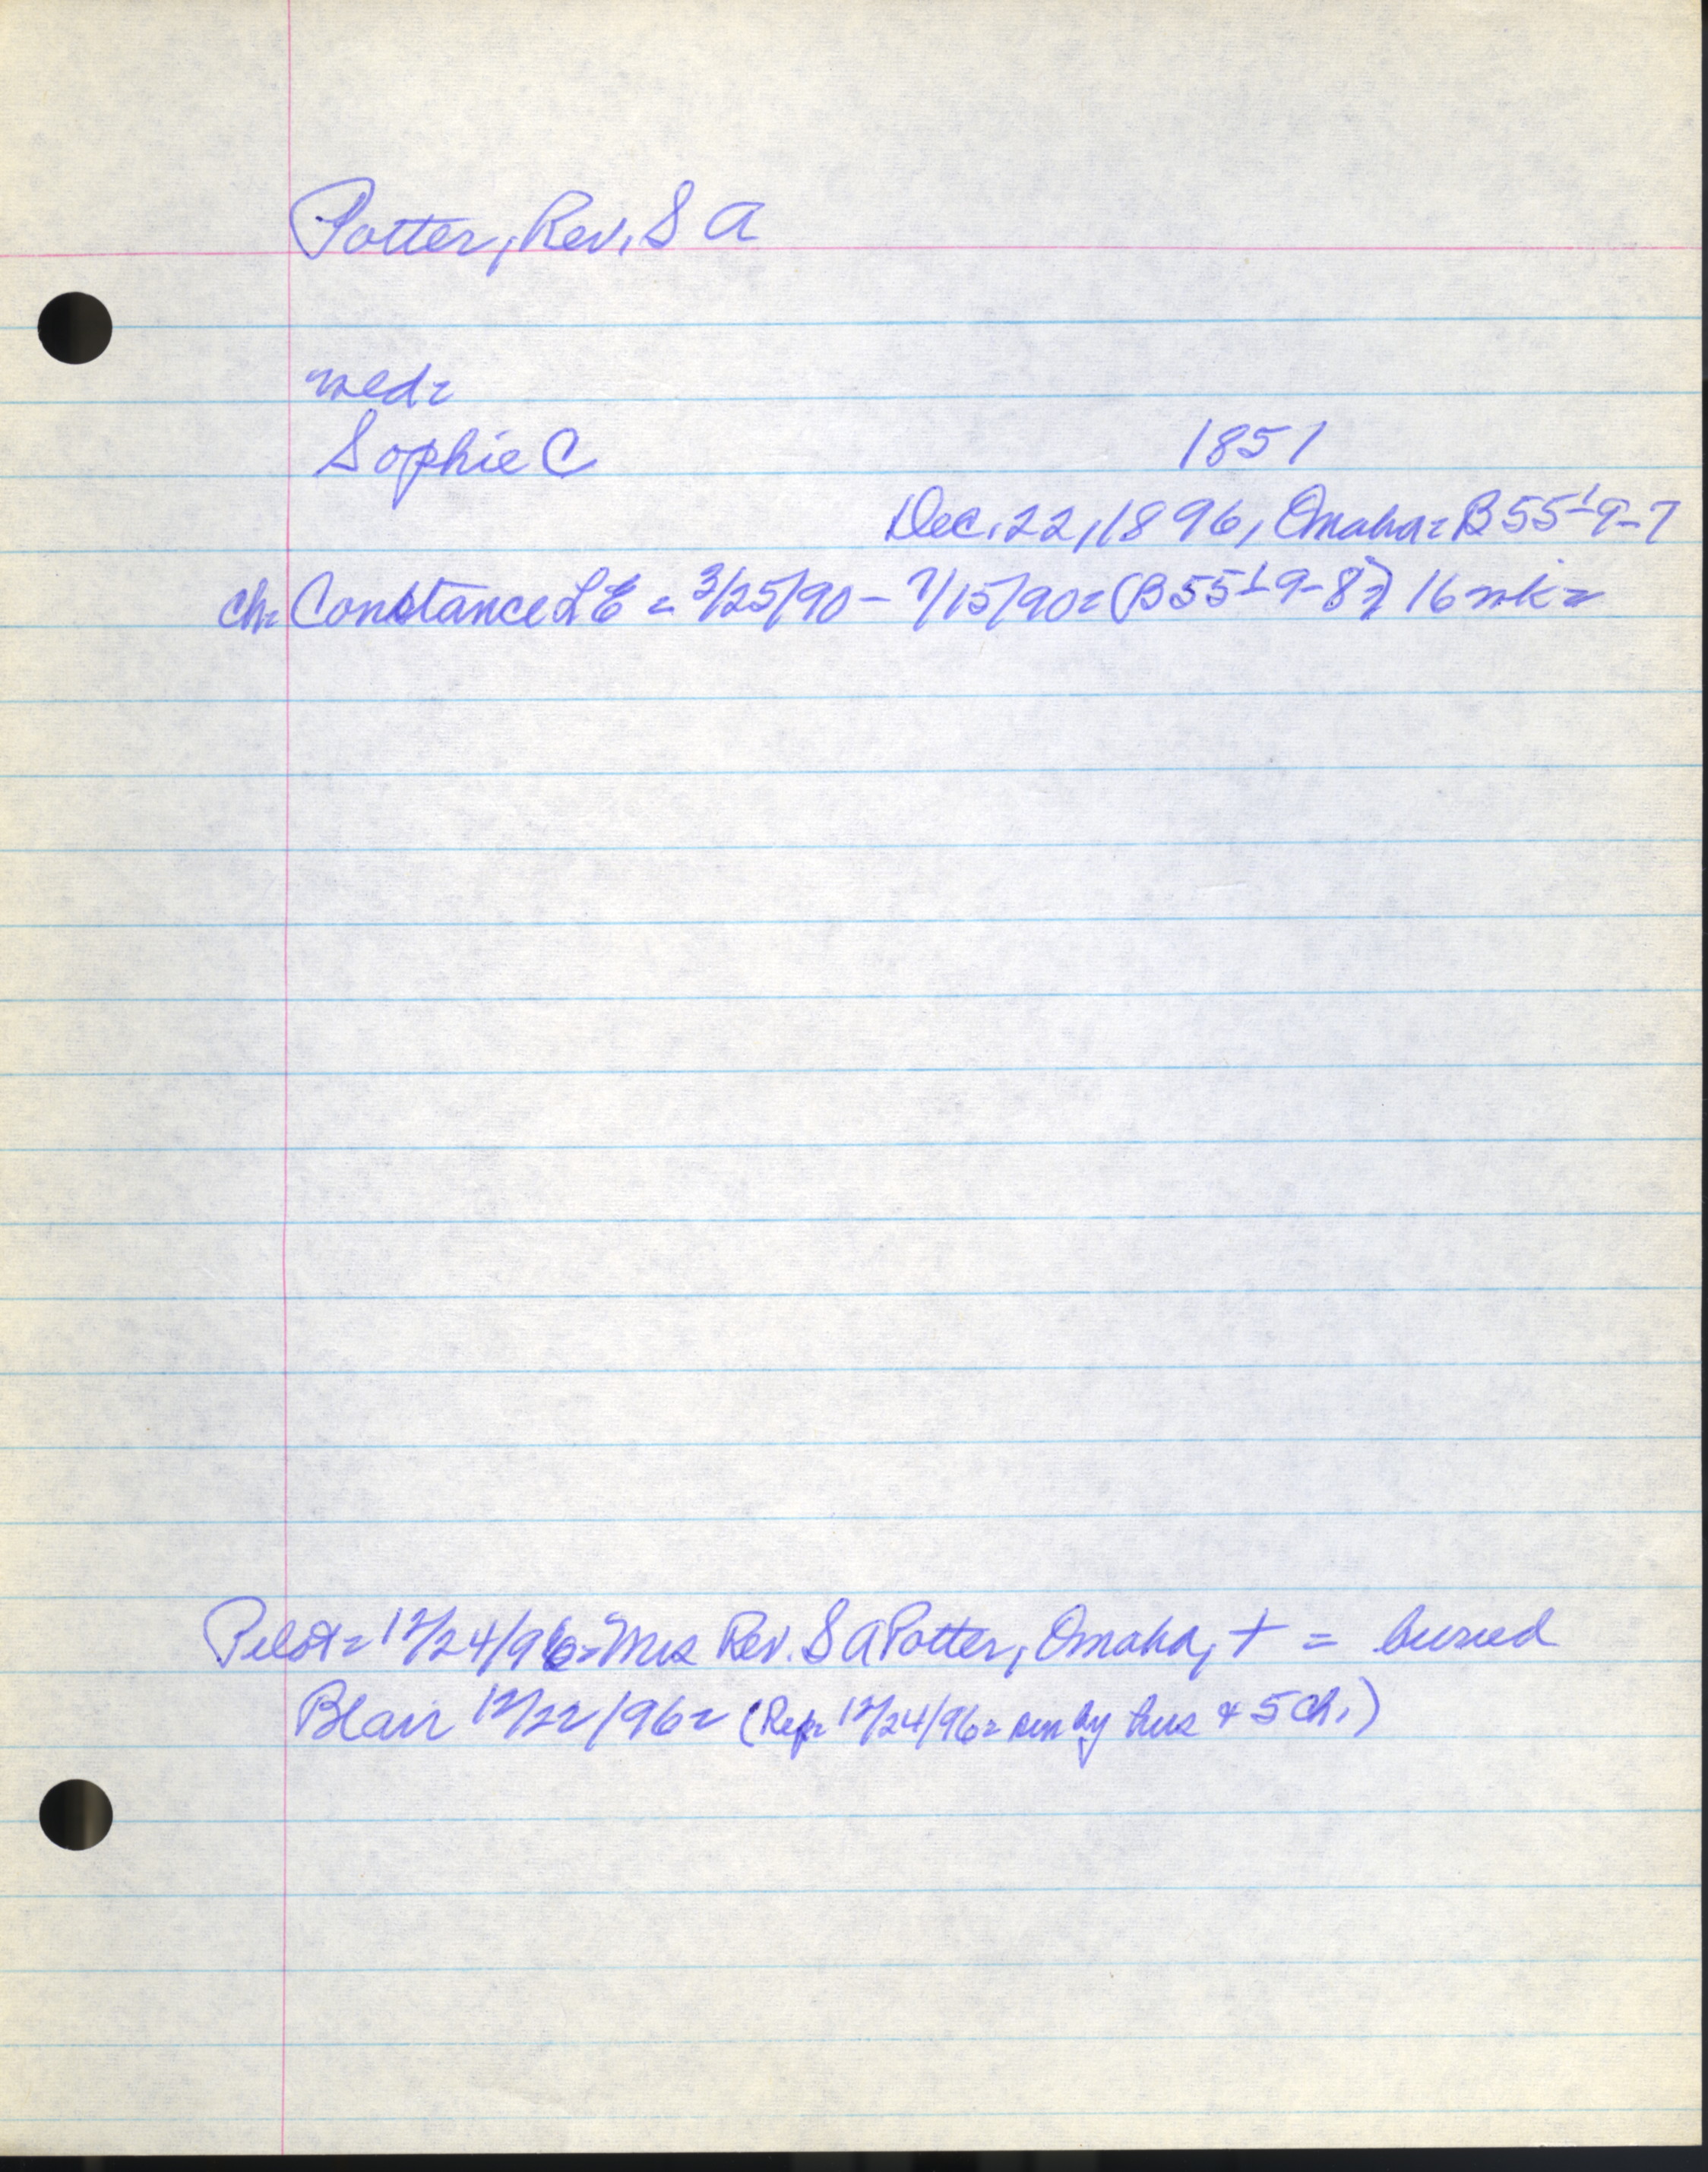 Potter, Rev. S A
wed=
Sophie C 1851
Dec. 22, 1896, Omaha= B55-1-9-7
ch= Constance L E = 3/25/90 - 7/15/90= (B55-1-9-8=) 16 wk=
Pilot= 12/24/96= Mrs Rev. S A Potter, Omaha, + = buried
Blair 12/22/96= (Rep= 12/24/96= sur by hus & 5 ch.)